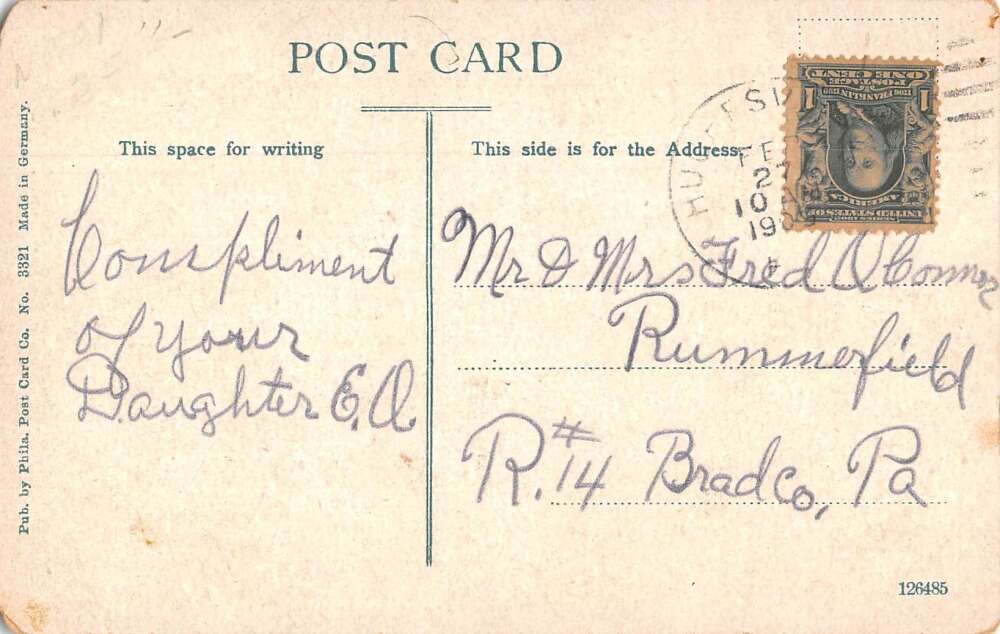 POST CARD
This space for writing
This side is for the Address.
Pub. by Phila. Post Card Co. No. 3321 Made in Germany.
Compliment
of your
Daughter E.O.
Mr & Mrs Fred O'Connor
Rummerfield
R.#14 Brad Co, Pa
FEB
27
10
190
SERIES 1902
UNITED STATES OF
AMERICA
1706 FRANKLIN 1790
POSTAGE
1 1
ONE CENT
126485